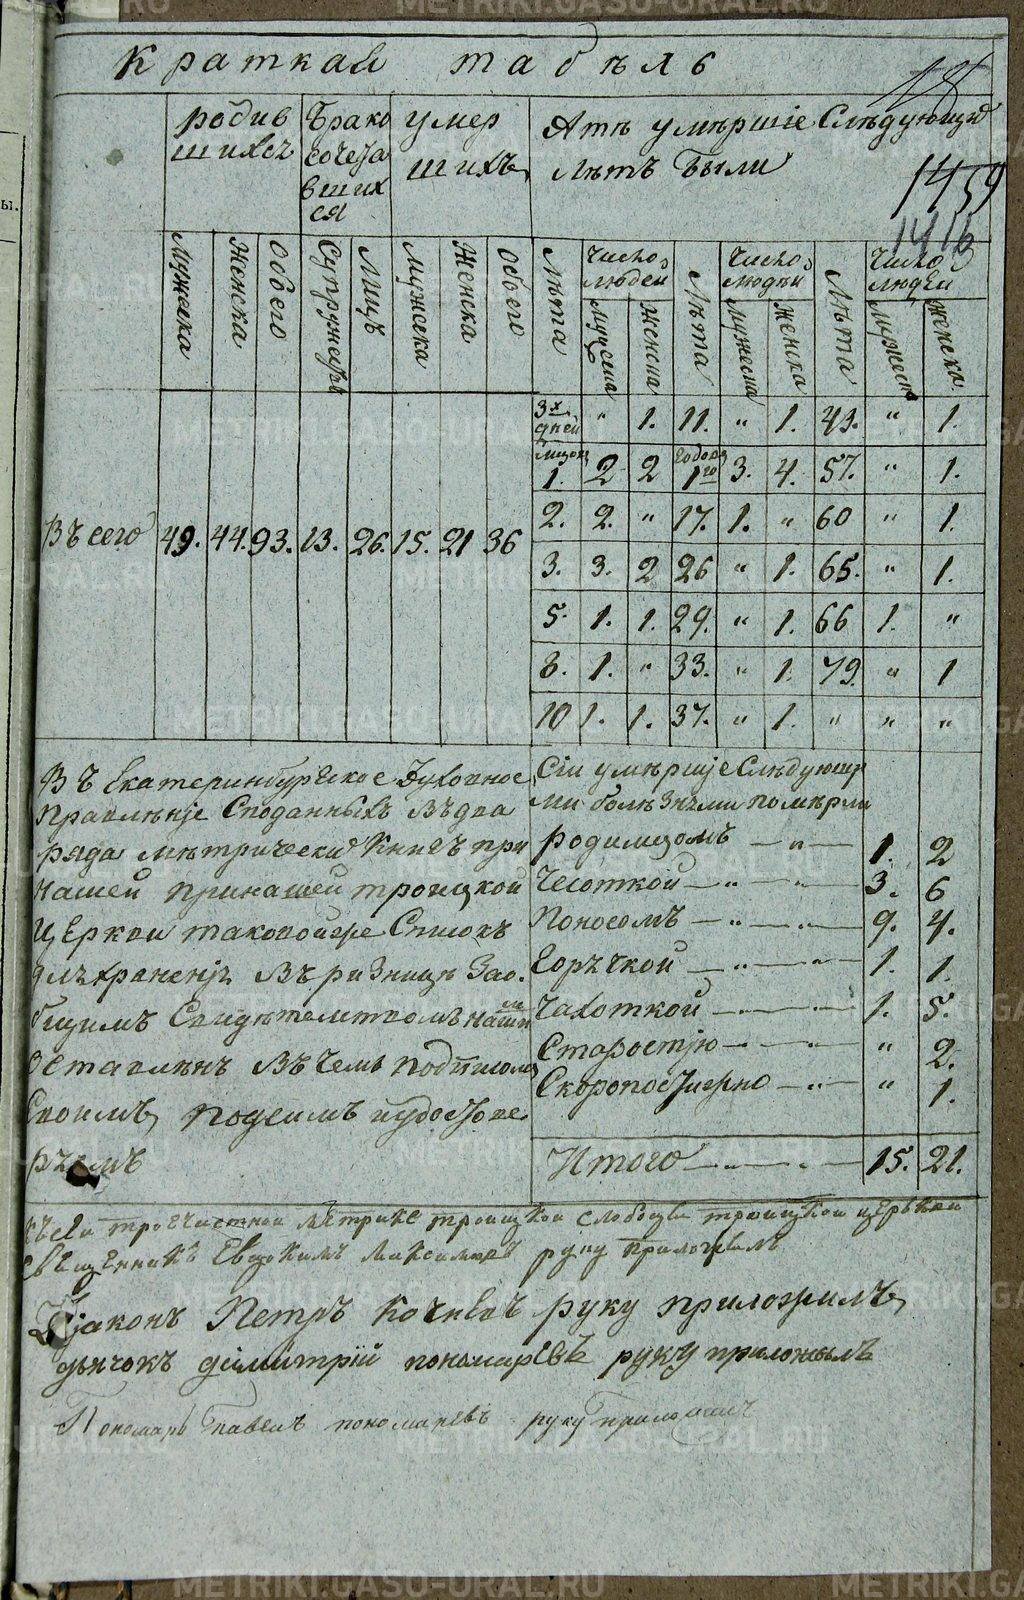 Краткая табель
родив
шихся
Брако
сочета
вших
ся
умер
шихъ
Атѣ умѣршіе Слѣдующихъ
лѣтъ были
18
1459
1416
Мужеска
Женска
Обоего
Супружествъ
Лицъ
Мужеска
Женска
Обоего
Лѣта
Число
людей
Мужеска
Женска
Лѣта
Число
людей
Мужеска
Женска
Лѣта
Число
людей
Мужеска
Женска
3х дней " 1. 11. " 1. 43. " 1.
1. 2 2 1го 3. 4. 57. " 1.
2. 2. " 17. 1. " 60 " 1.
Въсего 49. 44. 93. 13. 26. 15. 21 36
3. 3. 2 26 " 1. 65. " 1.
5. 1. 1. 29. " 1. 66 1. "
8. 1. " 33. " 1. 79. " 1
10 1. 1. 37. " 1. " " "
Въ Екатеринбургское Духовное
Правленіе Споданныхъ Въдва
ряда мѣтрически Книгъ при
нашей принашей троицкой
Церкви таковойже Списокъ
для храненія Въ ризницѣ Зао.
бщимъ Свидѣтелствомъ нашим
Оставлѣнъ Въ чемъ подписомъ
Своимъ, подсимъ иудостове
ряемъ
Сіи умѣршіе Слѣдующи
ми болѣзнѣми помѣрли
родимцомъ — " — 1. 2
Чесоткой — " — 3. 6
Поносомъ — " — 9. 4.
Горячкой — " — 1. 1.
Чахоткой — 1. 5.
Старостію — " 2.
Скоропостижно — " — " 1.
Итого — 15. 21.
Късей троечастной мѣтрике троицкой слободы троицкой церькви
Священникъ Евдокимъ Максимовъ руку приложилъ
Діаконъ Петръ Кочневъ руку приложилъ
дьячокъ дімитрій пономаревъ руку приложилъ
Пономарь Павелъ пономаревъ руку приложилъ
METRIKI.GASO-URAL.RU